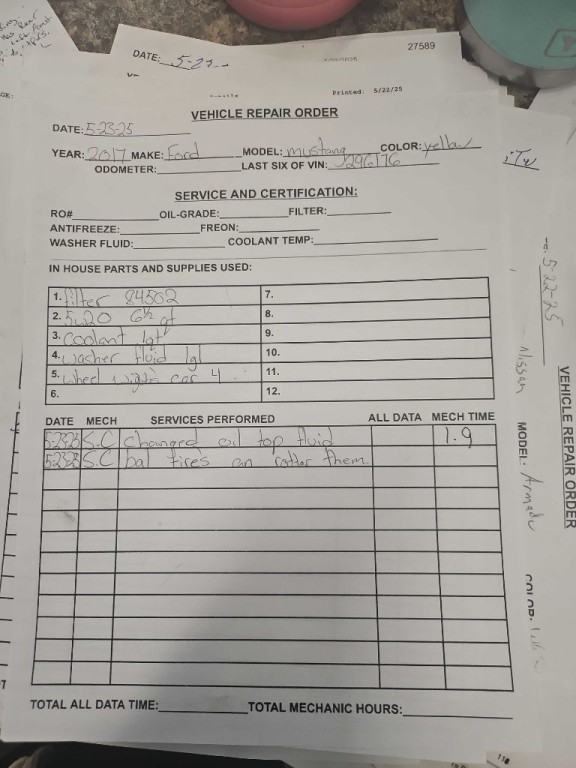 27589
DATE: 5-27
Printed: 5/22/25
VEHICLE REPAIR ORDER
DATE: 5-23-25
YEAR: 2017 MAKE: Ford MODEL: mustang COLOR: yellow
ODOMETER: LAST SIX OF VIN: J296176
SERVICE AND CERTIFICATION:
RO# OIL-GRADE: FILTER:
ANTIFREEZE: FREON:
WASHER FLUID: COOLANT TEMP:
IN HOUSE PARTS AND SUPPLIES USED:
1. filter 84502 7.
2. 5w20 6½ qt 8.
3. Coolant 1qt 9.
4. washer fluid 1gl 10.
5. wheel car 4 11.
6. 12.
DATE MECH SERVICES PERFORMED ALL DATA MECH TIME
5-23-25 S.C changed oil top fluid 1.9
5-23-25 S.C bal tires an rotter them
TOTAL ALL DATA TIME: TOTAL MECHANIC HOURS:
5-22-25
Nissan MODEL: Armada COLOR:
VEHICLE REPAIR ORDER